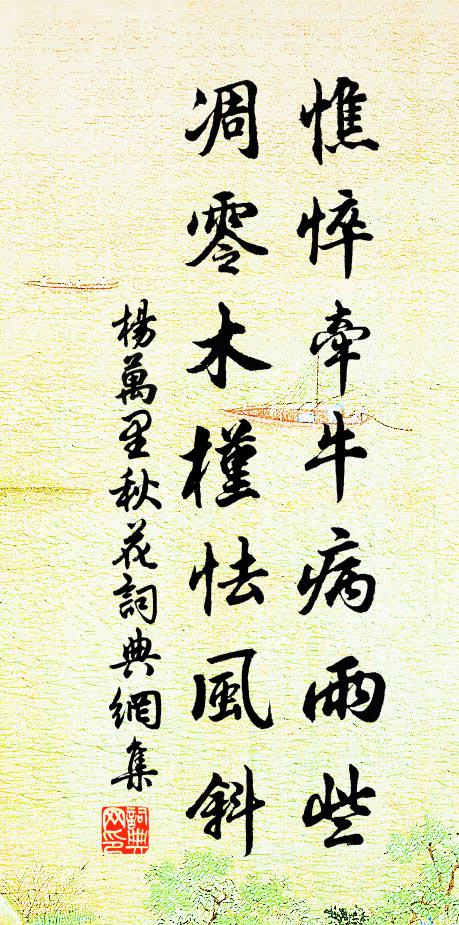 憔悴牽牛病雨些
凋零木槿怯風斜
楊萬里秋花詞典網集
詞典
网印